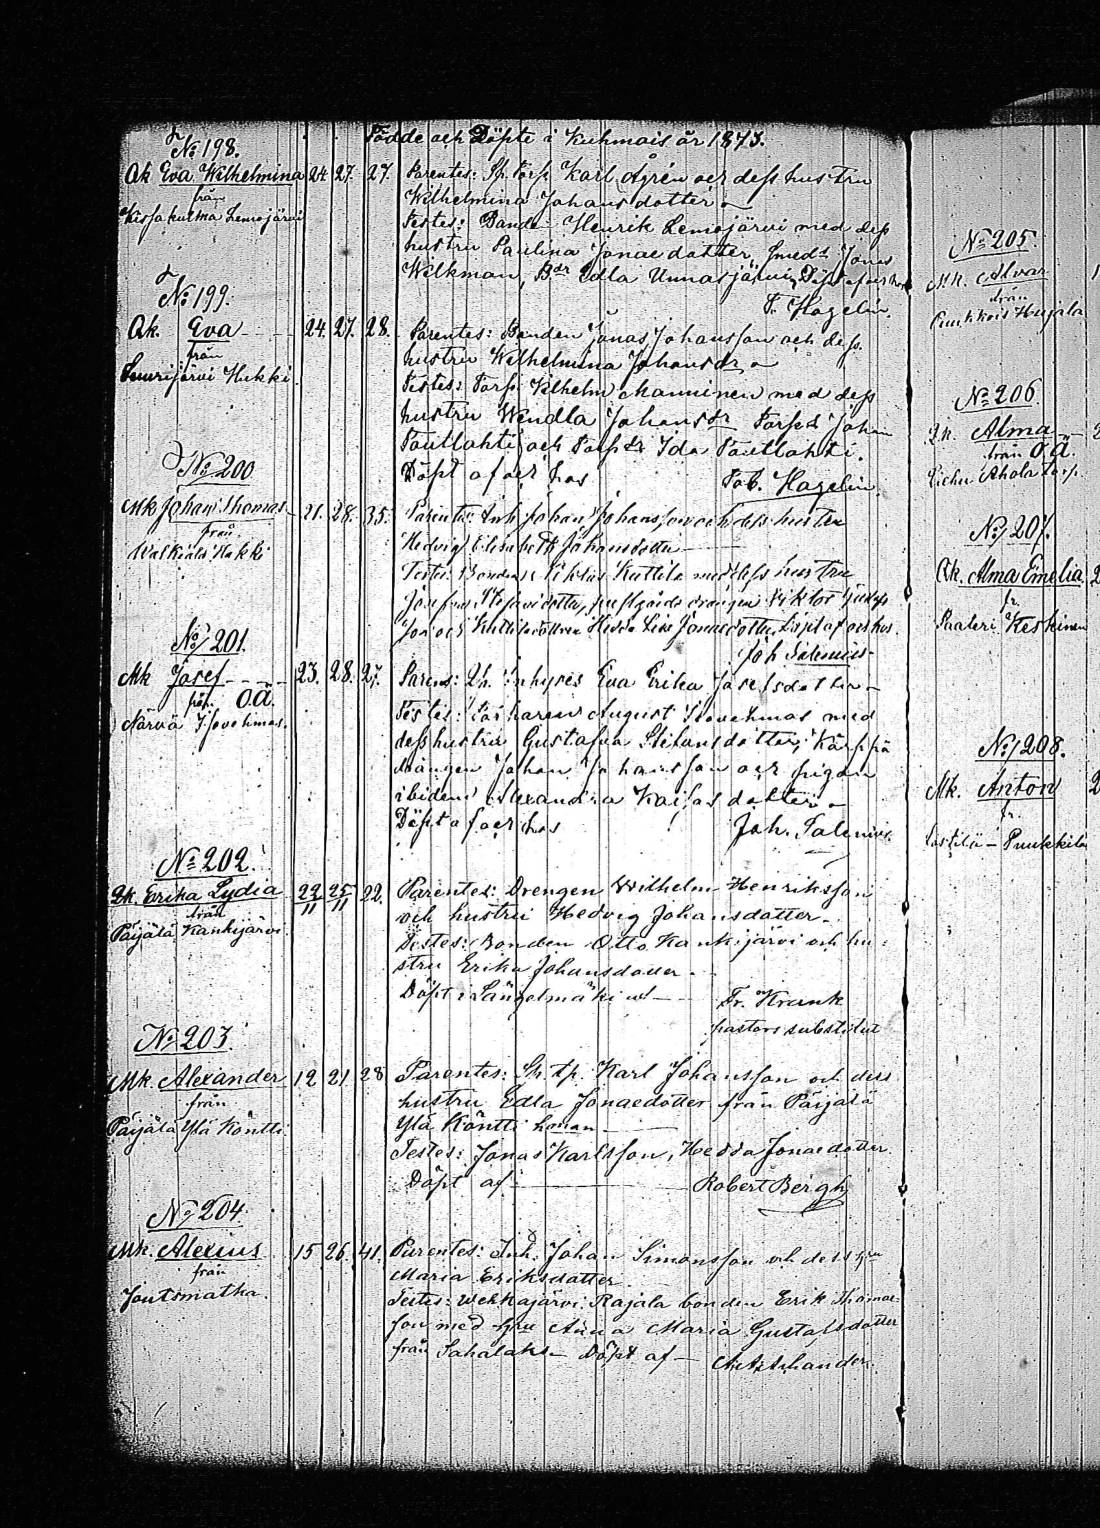 Födde och Döpte i Kuhmois år 1873.
No 198.
Qk Eva Wilhelmina 24. 27. 27.
från
Kissakulma Lemojärvi
Parentes: Karl Ågrén och dess hustru
Wilhelmina Johansdotter
Testes: Bonde Henrik Lemojärvi med dess
hustru Paulina Jonaedotter, Smed Jonas
Wilkman, Edla Unnasjärvi, Döpt af och hos
F. Hagelin
No 199.
Qk. Eva 24. 27. 28.
från
Suurijärvi Hukki
Parentes: Bonden Jonas Johansson och dess
hustru Wilhelmina Johansdr
Testes: Torp. Wilhelm Manninen med dess
hustru Wendla Johansdr Johan
Pautlahti och Ida Pautlahti.
Döpt af och hos Hagelin.
No 200
Mk Johan Thomas 21. 28. 35.
från
Hukki
Parentes: Inh. Johan Johansson och dess hustru
Hedvig Elisabeth Johansdotter
Testes: Bonden Kuttila med dess hustru
Josefina Stefansdotter, drängen Viktor
och Hedda Lisa Jonaedotter, Döpt af och hos
Joh Salenius
No 201.
Mk Josef 23. 28. 27.
från O.ä.
Närvä Isovehmas.
Parens: Qh. Inhyses Eva Erika Josefsdotter
Testes: August Isovehmas med
dess hustru Gustafva Stefansdotter, Kärppä
drängen Johan Johansson och pigan
ibidem Alexandra Kaisasdotter
Döpt af och hos Joh. Salenius
No 202.
Qk. Erika Lydia 22/11 25/11 22.
från
Päijälä Kankijärvi
Parentes: Drengen Wilhelm Henriksson
och hustru Hedvig Johansdotter.
Testes: Bonden Otto Kankijärvi och hu-
stru Erika Johansdotter.
Döpt i Längelmäki af Fr. Krank
pastors substitut
No 203.
Mk. Alexander 12 21 28
från
Päijälä Ylä Köntti
Parentes: Karl Johansson och dess
hustru Edla Jonaedotter från Päijälä
Ylä Köntti
Testes: Jonas Karlsson, Hedda Jonaedotter
Döpt af Robert Bergh
No 204.
Mk. Alexius 15. 26. 41.
från
Joutsmatka.
Parentes: Inh. Johan Simonsson och dess hru
Maria Eriksdotter
Testes: Wehkajärvi Rajala bonden Erik Thomas-
son med hru Anna Maria Gustafsdotter
från Sahalaks Döpt af
No 205.
Mk. Alvar
från
Puukkois Heijala
No 206.
Qk. Alma
från O.ä.
Ahola torp.
No 207.
Qk. Alma Emelia
fr.
Paateri Keskinen
No 208.
Mk. Anton
fr.
Puukkila